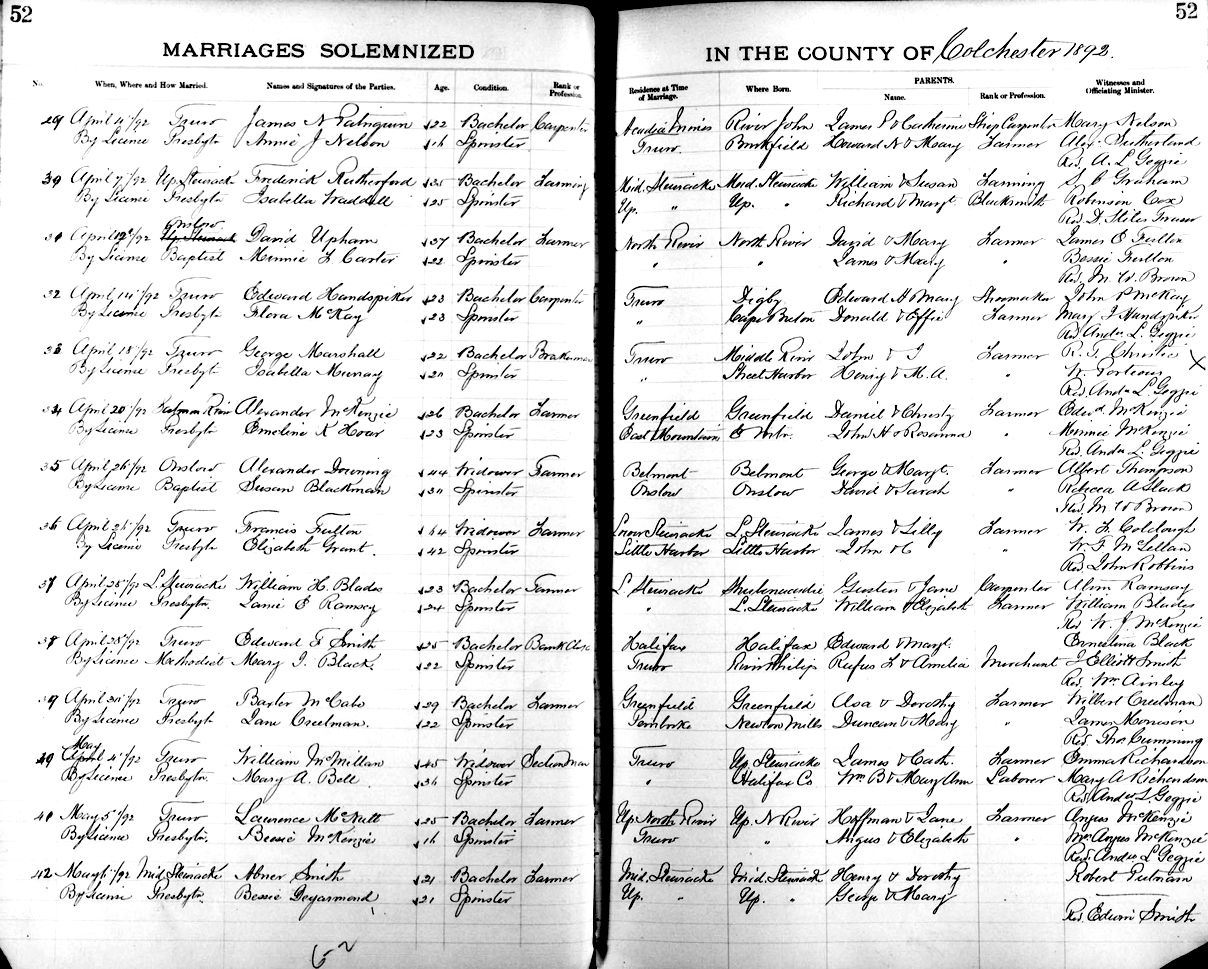 52
52
MARRIAGES SOLEMNIZED IN THE COUNTY OF Colchester 1892.
No. When, Where and How Married. Names and Signatures of the Parties. Age. Condition. Rank or Profession. Residence at Time of Marriage. Where Born. PARENTS. Name. Rank or Profession. Witnesses and Officiating Minister.
29 April 4/92 Truro James N Patriquin 22 Bachelor Carpenter Acadia Mines River John James P & Catherine Ship Carpenter Mary Nelson
By Licence Presbytn Annie J Nelson Spinster Truro Brookfield Howard N & Mary Farmer Alex. Sutherland
Rev. A. L. Geggie
30 April 7/92 Up. Stewiacke Frederick Rutherford Bachelor Farming Mid. Stewiacke Mid. Stewiacke William & Susan Farming S. C Graham
By Licence Presbyt Isabella Waddell 25 Spinster Up. " Up. " Richard & Margt. Blacksmith Robinson Cox
Rev. D. Stiles Fraser
Onslow
31 April 12/92 David Upham 37 Bachelor Farmer North River North River David & Mary Farmer James E Fulton
By License Baptist Minnie L Carter 22 Spinster " " James & Mary " Bessie Fulton
Rev. M. W. Brown
32 April 14/92 Truro Edward Handspiker 23 Bachelor Carpenter Truro Digby Edward H & Mary Shoemaker John P McKay
By Licence Presbyt Flora McKay 23 Spinster " Cape Breton Donald & Effie Farmer Mary J Handspiker
Rev. Andw L. Geggie
33 April 18/92 Truro George Marshall 22 Bachelor Brakeman Truro Middle River John & J Farmer R. F. Christie X
By Licence Presbyt Isabella Murray Spinster " Street Harbor Henry & M. A. " W. Porteous
Rev. Andw L. Geggie
34 April 20/92 Kemptown River Alexander McKenzie 26 Bachelor Farmer Greenfield Greenfield Daniel & Christy Farmer Edwd McKenzie
By Licence Presbytn Emeline K Hoar 23 Spinster East Mountain John H & Rosanna " Minnie McKenzie
Rev. Andw L. Geggie
35 April 26/92 Onslow Alexander Downing 44 Widower Farmer Belmont Belmont George & Margt. Farmer Albert Thompson
By Licence Baptist Susan Blackman Spinster Onslow Onslow David & Sarah " Rebecca A Slack
Rev. M. W Brown
36 April 26/92 Truro Francis Fulton 44 Widower Farmer Lower Stewiacke L. Stewiacke James & Lilly Farmer
By Licence Presbytn Elizabeth Grant. 42 Spinster Little Harbor Little Harbor John & C " W. F. McLellan
Rev. John Robbins
37 April 28/92 L. Stewiacke William H. Blades 23 Bachelor L Stewiacke Shubenacadie & Jane Carpenter Ramsay
By Licence Presbytn. Janie E Ramsey 24 Spinster " L. Stewiacke William & Elizabeth Farmer William Blades
Rev. W. J. McKenzie
38 April 28/92 Truro Edward F Smith 25 Bachelor Bank Halifax Halifax Edward & Margt. Black
By Licence Methodist Mary J. Black. 22 Spinster Truro River Philip Rufus F. & Amelia Merchant J Elliott Smith
Rev. Wm. Ainley
39 April 30/92 Truro McCabe 29 Bachelor Farmer Greenfield Greenfield Asa & Dorothy Farmer Wilbert Creelman
By Licence Presbyt Jane Creelman. 22 Spinster Pembroke Newton Mills Duncan & Mary " James Morrison
Rev. Thos. Cumming
May
April 4/92 Truro William McMillan 45 Widower Section Man Truro Up. Stewiacke James & Cath. Farmer Emma Richardson
By Licence Presbytn. Mary A. Bell 36 Spinster " Halifax Co Wm B & Mary Ann Laborer Mary A Richardson
Rev. Andw L Geggie
May 5/92 Truro Lawrence McNutt 25 Bachelor Farmer Up. North River Up. N River Hoffman & Jane Farmer Angus McKenzie
By Licence Presbytn. Bessie McKenzie Spinster Truro " Angus & Elizabeth " Mrs Angus McKenzie
Rev. Andw L Geggie
42 May 6/92 Mid Stewiacke Abner Smith 21 Bachelor Farmer Mid. Stewiacke Mid. Stewiacke Henry & Dorothy Robert Putnam
By Licence Presbytn. Bessie Degarmond 21 Spinster Up. " Up. " George & Mary
Rev. Edwin Smith